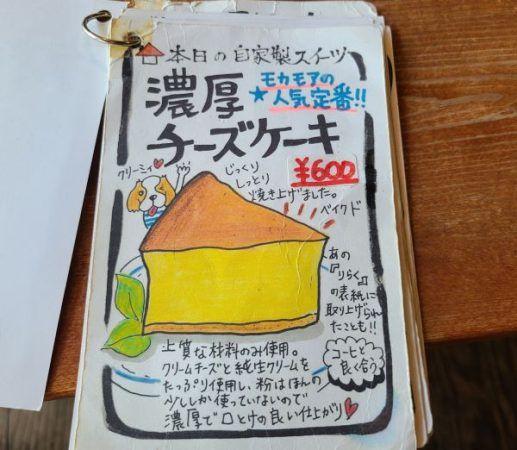 本日の自家製スイーツ
濃厚
チーズケーキ
モカモアの
★人気定番!!
¥600
クリーミィ♥
じっくり
しっとり
焼き上げました。
ベイクド
あの
『りらく』
の表紙に
取り上げられ
たことも!!
コーヒーと
良く合う
上質な材料のみ使用。
クリームチーズと純生クリームを
たっぷり使用し、粉はほんの
少ししか使っていないので
濃厚で口どけの良い仕上がり♥